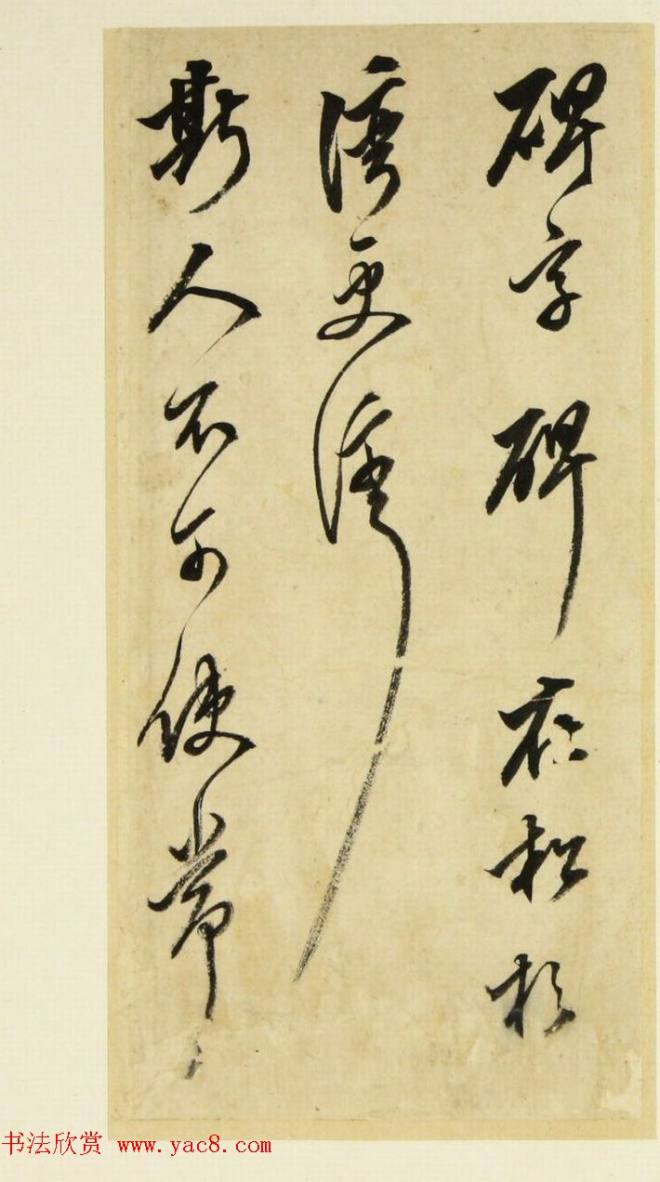 碑字碑在松杉
更
斯人不可使常
书法欣赏 www.yac8.com